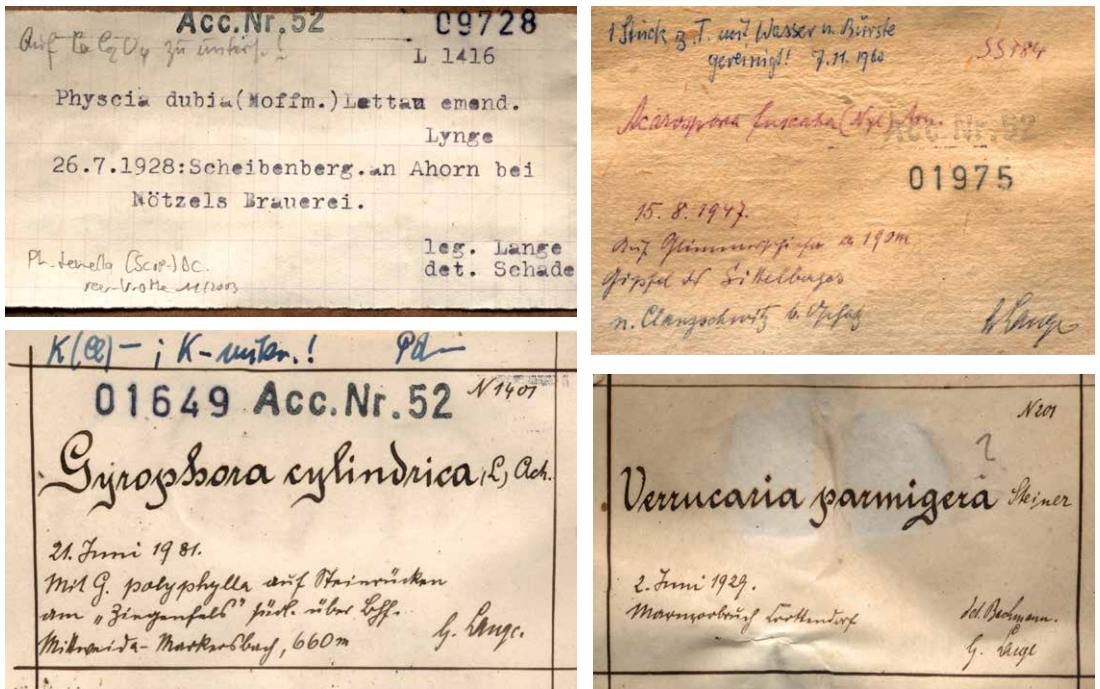 Acc.Nr.52 09728
Auf Ca C2O4 zu unters.!
L 1416
Physcia dubia(Hoffm.)Lettau emend.
Lynge
26.7.1928:Scheibenberg.an Ahorn bei
Nötzels Brauerei.
leg. Lange
det. Schade
Ph. tenella (Scop.) DC.
11/2003
1 Stück z. T. mit Wasser u. Bürste
gereinigt! 7.11.1960
Acarospora fuscata (Nyl.) Arn.
Acc.Nr.52
01975
15. 8. 1947.
Auf Glimmerschiefer ca 190m
Gipfel des
n. Clanzschwitz b. Oschatz
Lange
K(Cl)− ; K− unter.! Pd−
01649 Acc.Nr.52 N 1401
Gyrophora cylindrica (L) Ach.
21. Juni 1931.
Mit G. polyphylla auf Steinrücken
am „Ziegenfels" südl. über Bhf.
Mittweida-Markersbach, 660m
G. Lange.
N 201
?
Verrucaria parmigera Steiner
2. Juni 1929.
Marmorbruch Crottendorf
det. Bachmann.
G. Lange